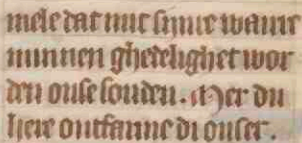 mele dat mit sijnre waerre
minnen ghedelighet wor
den onse sonden. Mer du
here ontfarme di onser.